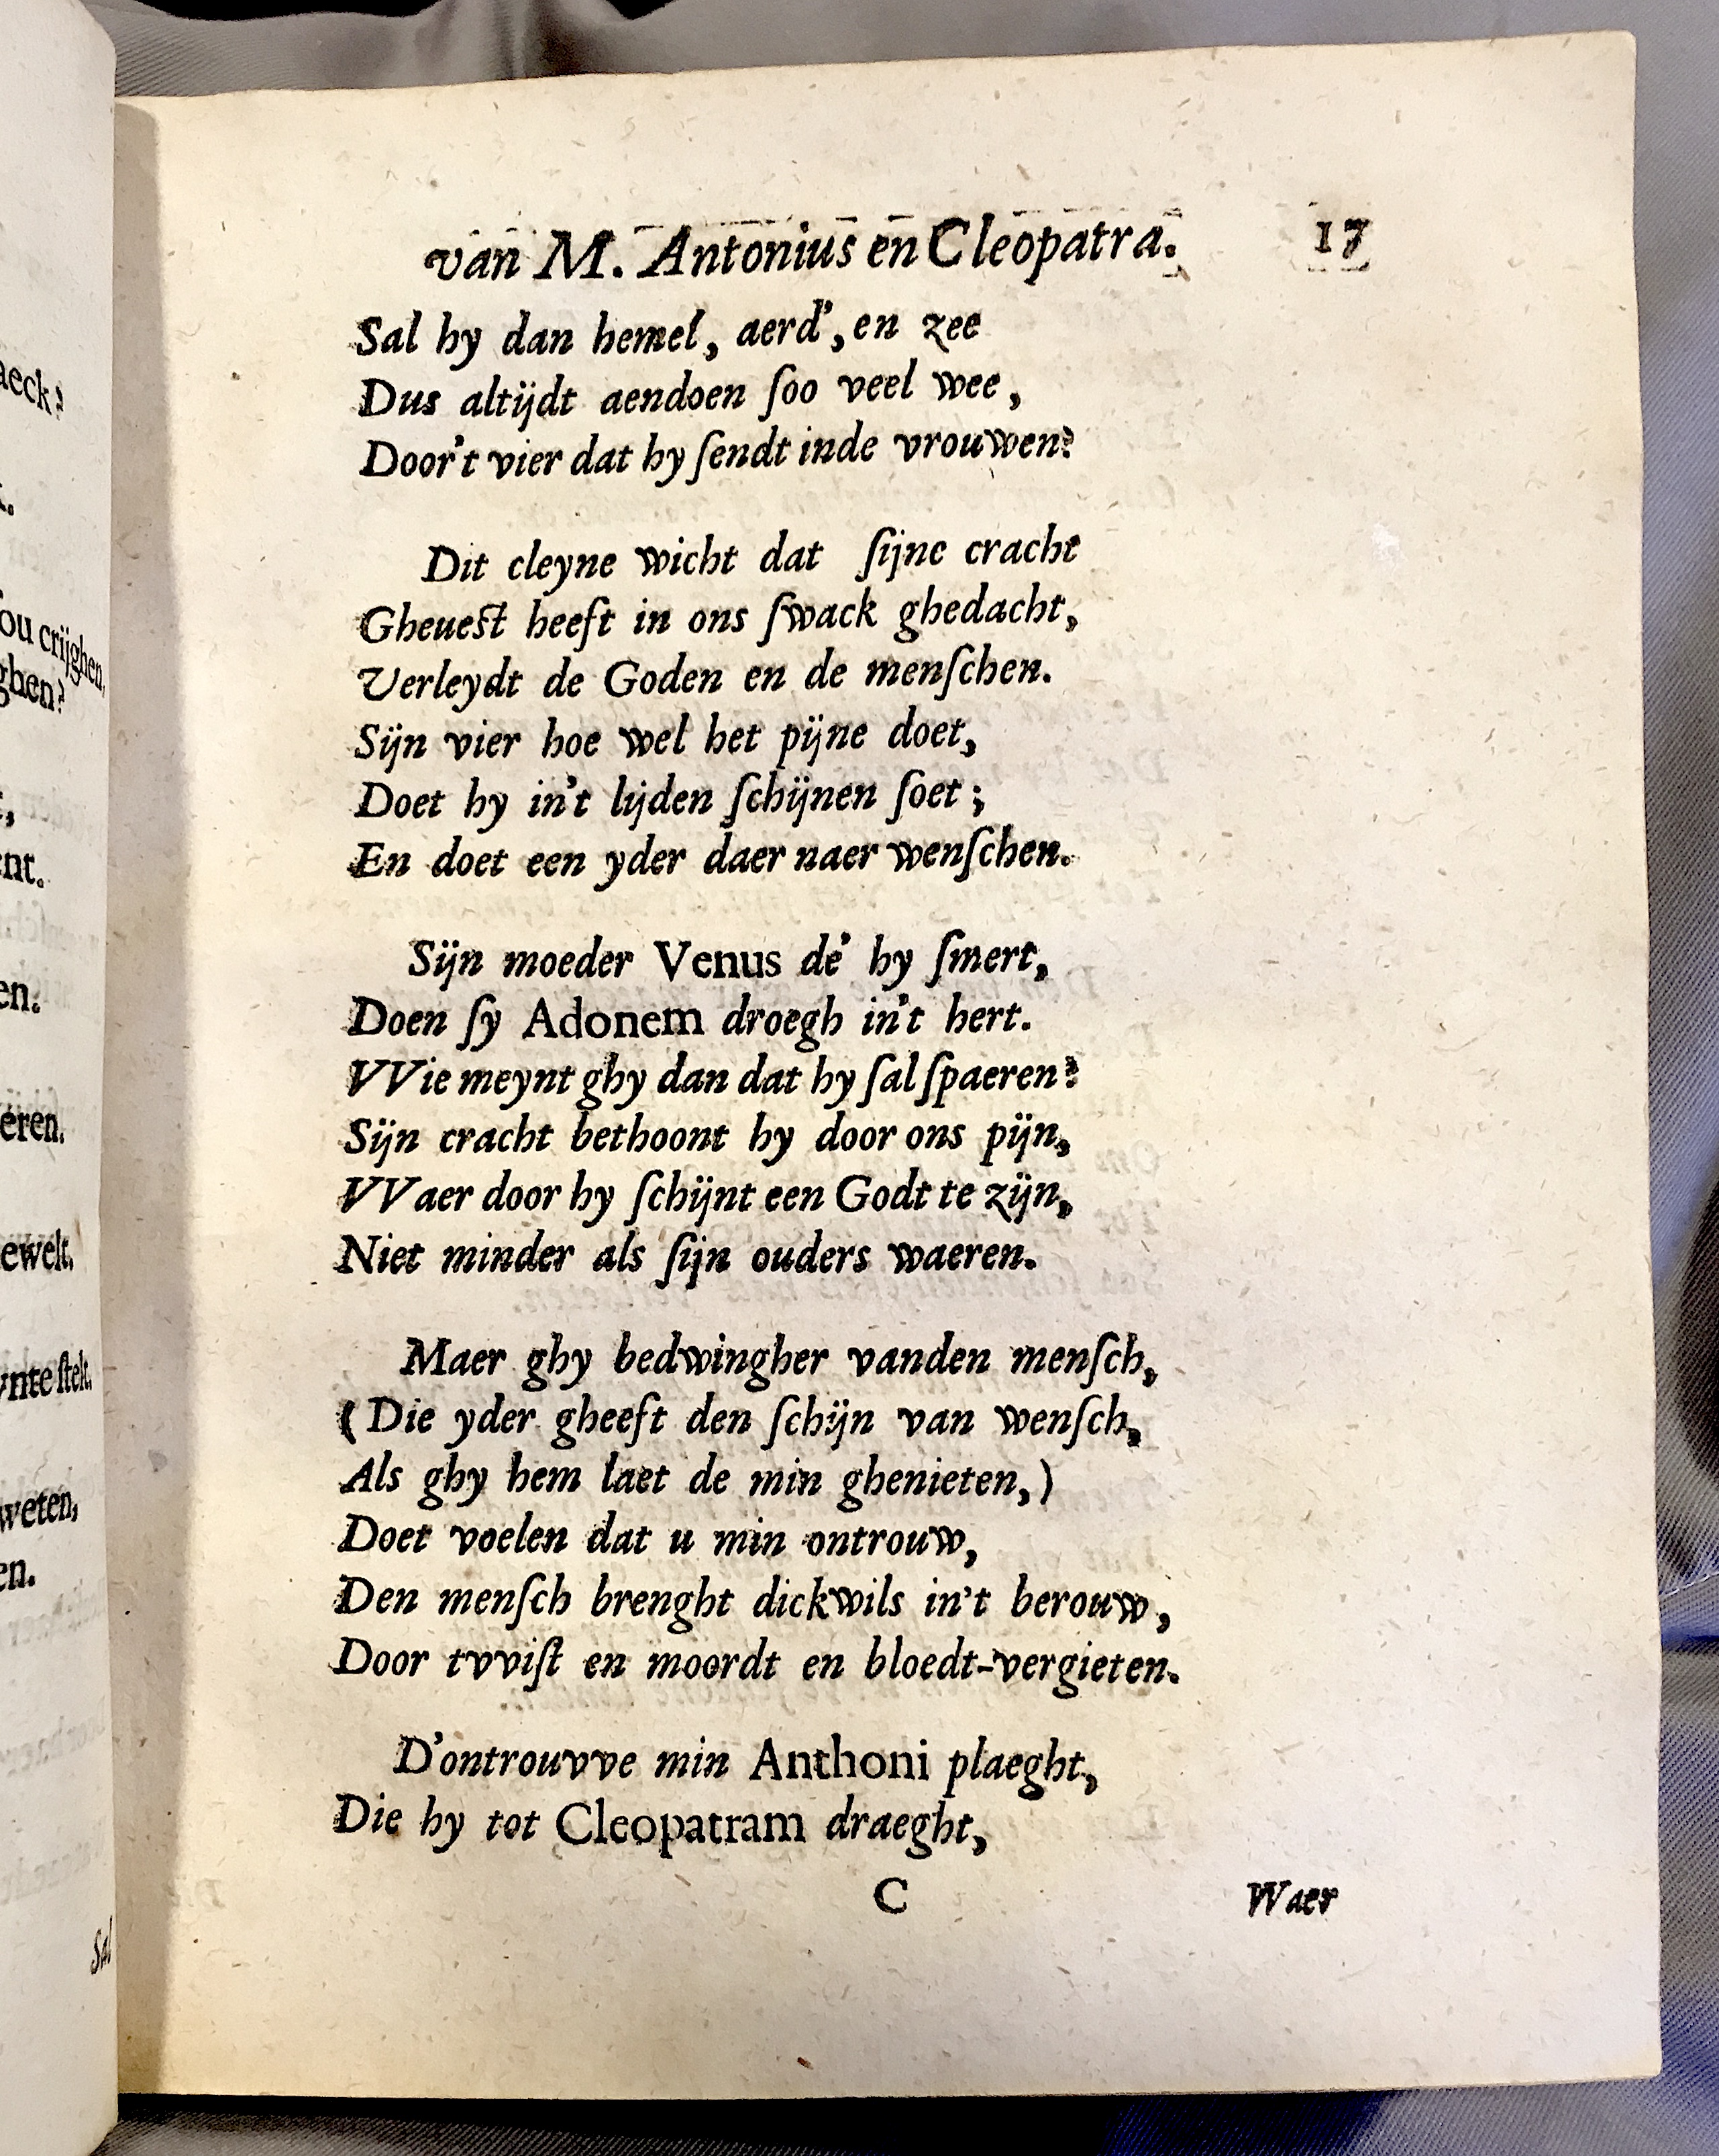 van M. Antonius en Cleopatra. 17
Sal hy dan hemel, aerd', en zee
Dus altijdt aendoen ſoo veel wee,
Door't vier dat hy ſendt inde vrouwen?
Dit cleyne wicht dat ſijne cracht
Gheuest heeft in ons ſwack ghedacht,
Verleydt de Goden en de menſchen.
Sijn vier hoe wel het pijne doet,
Doet hy in't lijden ſchijnen ſoet;
En doet een yder daer naer wenſchen.
Sijn moeder Venus de' hy ſmert,
Doen ſy Adonem droegh in't hert.
VVie meynt ghy dan dat hy ſal ſpaeren?
Sijn cracht bethoont hy door ons pijn,
VVaer door hy ſchijnt een Godt te zijn,
Niet minder als ſijn ouders waeren.
Maer ghy bedwingher vanden menſch,
(Die yder gheeft den ſchijn van wenſch,
Als ghy hem laet de min ghenieten,)
Doet voelen dat u min ontrouw,
Den menſch brenght dickwils in't berouw,
Door tvviſt en moordt en bloedt-vergieten.
D'ontrouvve min Anthoni plaeght,
Die hy tot Cleopatram draeght,
C Waer
aeck?
ou crijghen,
ghen?
ent.
en.
eren.
ewelt.
ynte ſtelt.
weten,
en.
Sal